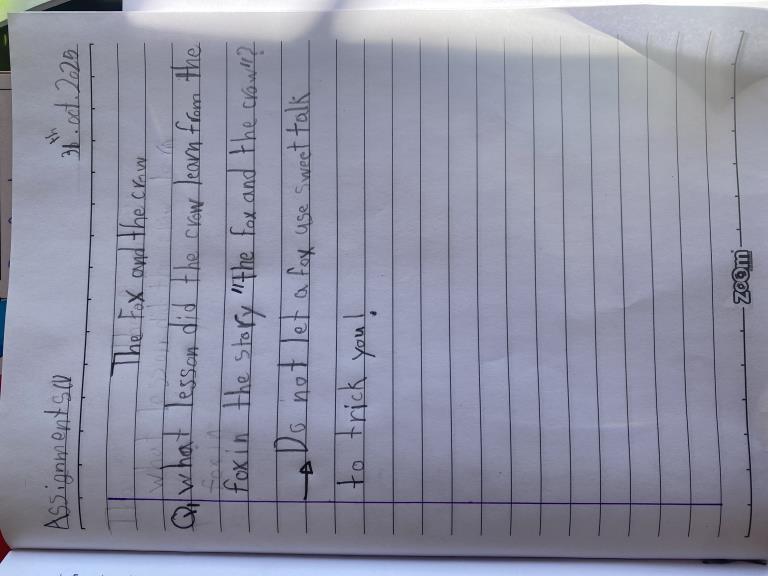 Assignments
th
The Fox and the crow
Q1 what lesson did the crow learn from the
fox in the story "the fox and the crow"?
Do not let a fox use sweet talk
to trick you!
zoom